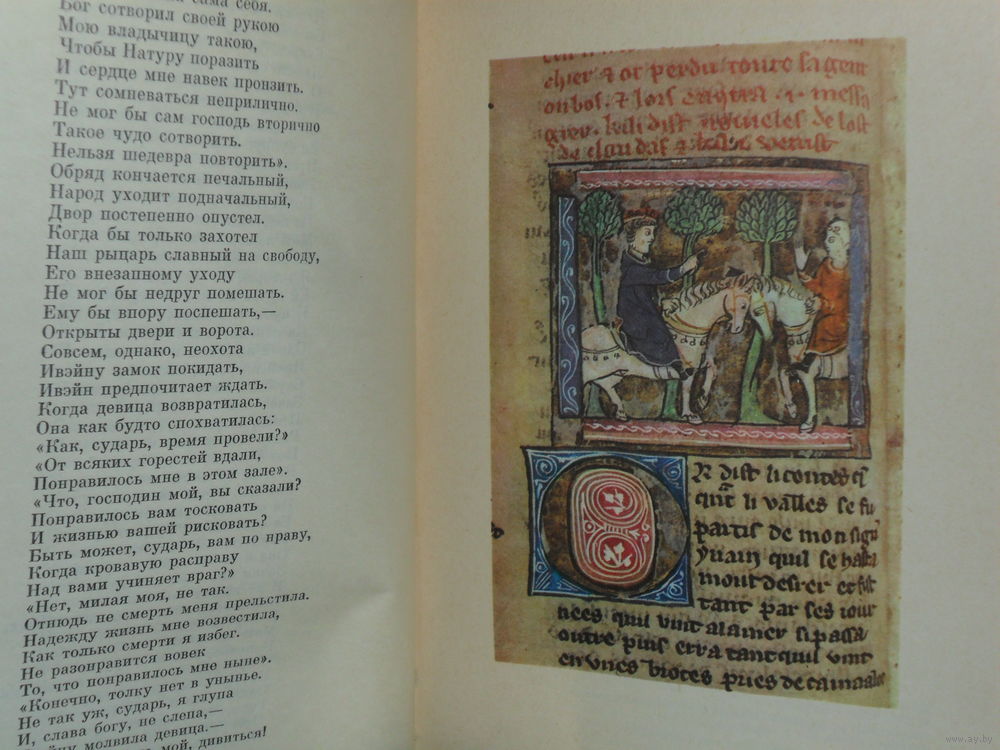 сама себя.
Бог сотворил своей рукою
Мою владычицу такою,
Чтобы Натуру поразить
И сердце мне навек пронзить.
Тут сомневаться неприлично.
Не мог бы сам господь вторично
Такое чудо сотворить.
Нельзя шедевра повторить».
Обряд кончается печальный,
Народ уходит подначальный,
Двор постепенно опустел.
Когда бы только захотел
Наш рыцарь славный на свободу,
Его внезапному уходу
Не мог бы недруг помешать.
Ему бы впору поспешать,—
Открыты двери и ворота.
Совсем, однако, неохота
Ивэйну замок покидать,
Ивэйн предпочитает ждать.
Когда девица возвратилась,
Она как будто спохватилась:
«Как, сударь, время провели?»
«От всяких горестей вдали,
Понравилось мне в этом зале».
«Что, господин мой, вы сказали?
Понравилось вам тосковать
И жизнью вашей рисковать?
Быть может, сударь, вам по нраву,
Когда кровавую расправу
Над вами учиняет враг?»
«Нет, милая моя, не так.
Отнюдь не смерть меня прельстила.
Надежду жизнь мне возвестила,
Как только смерти я избег.
Не разонравится вовек
То, что понравилось мне ныне».
«Конечно, толку нет в унынье.
Не так уж, сударь, я глупа
И, слава богу, не слепа,—
молвила девица.—
мой, дивиться!
chier & ot perdu toute sa gent
on bos. & lors
de lost
de claudas &
R dist li contes q
qnt li valles se fu
partis de mon sign
yvain quil se hasta
mout derrer et fist
tant par ses iour
nees quil vint a lainer si passa
outre puis erra tant quil vint
en unes broces pries de camaalot
www.ay.by